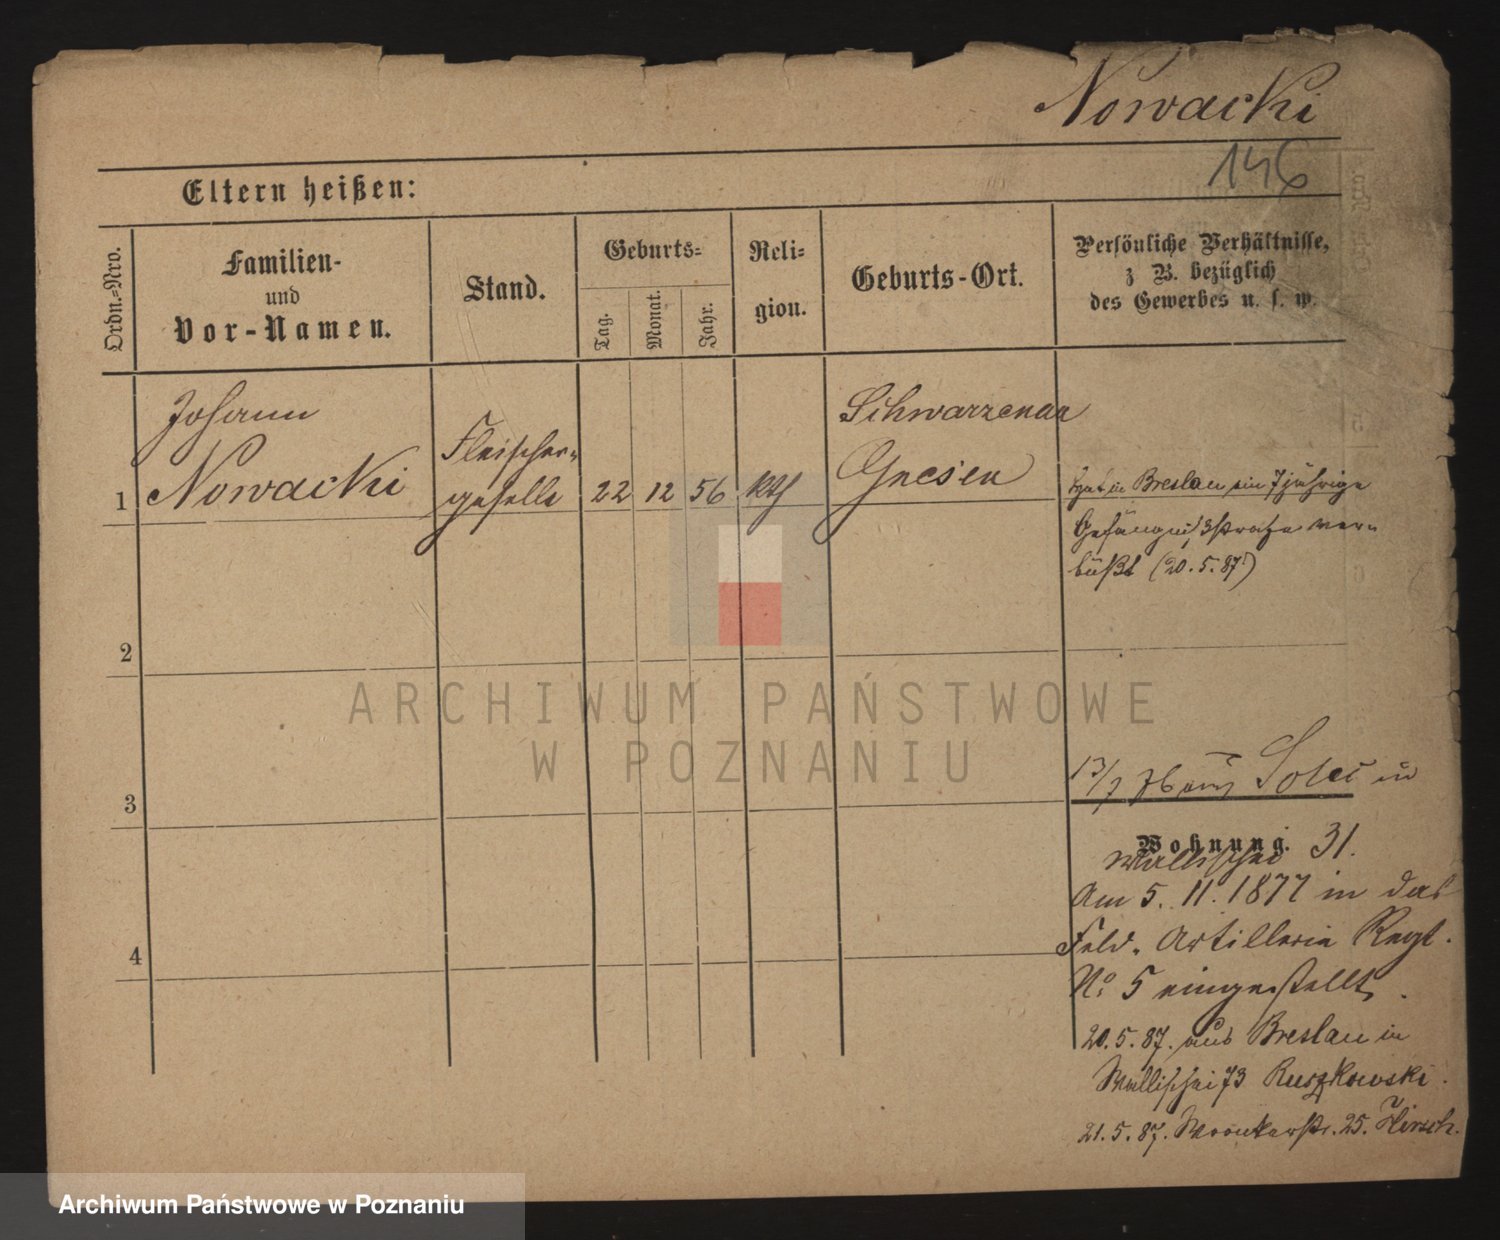 Nowacki
146
Eltern heißen:
Ordn.=Nro.
Familien-
und
Vor-Namen.
Stand.
Geburts=
Tag.
Monat.
Jahr.
Reli=
gion.
Geburts-Ort.
Persönliche Verhältnisse,
z B. bezüglich
des Gewerbes u. s. w.
1
Johann
Nowacki
Fleischer=
geselle
22 12 56 kth
Schwarzenau
Gnesen
hat in Breslau ein 7jährige
Gefängnißstrafe ver=
büßt (20.5.87)
2
3
4
13/7 Solec in
Wohnung.
Wallischei 31.
Am 5. 11. 1877 in das
Feld. Artillerie Regt.
No: 5 eingestellt.
20.5.87. aus Breslau in
Wallischei 73 Ruszkowski.
21.5.87. Wronkerstr. 25. Hirsch.
ARCHIWUM PAŃSTWOWE
W POZNANIU
Archiwum Państwowe w Poznaniu